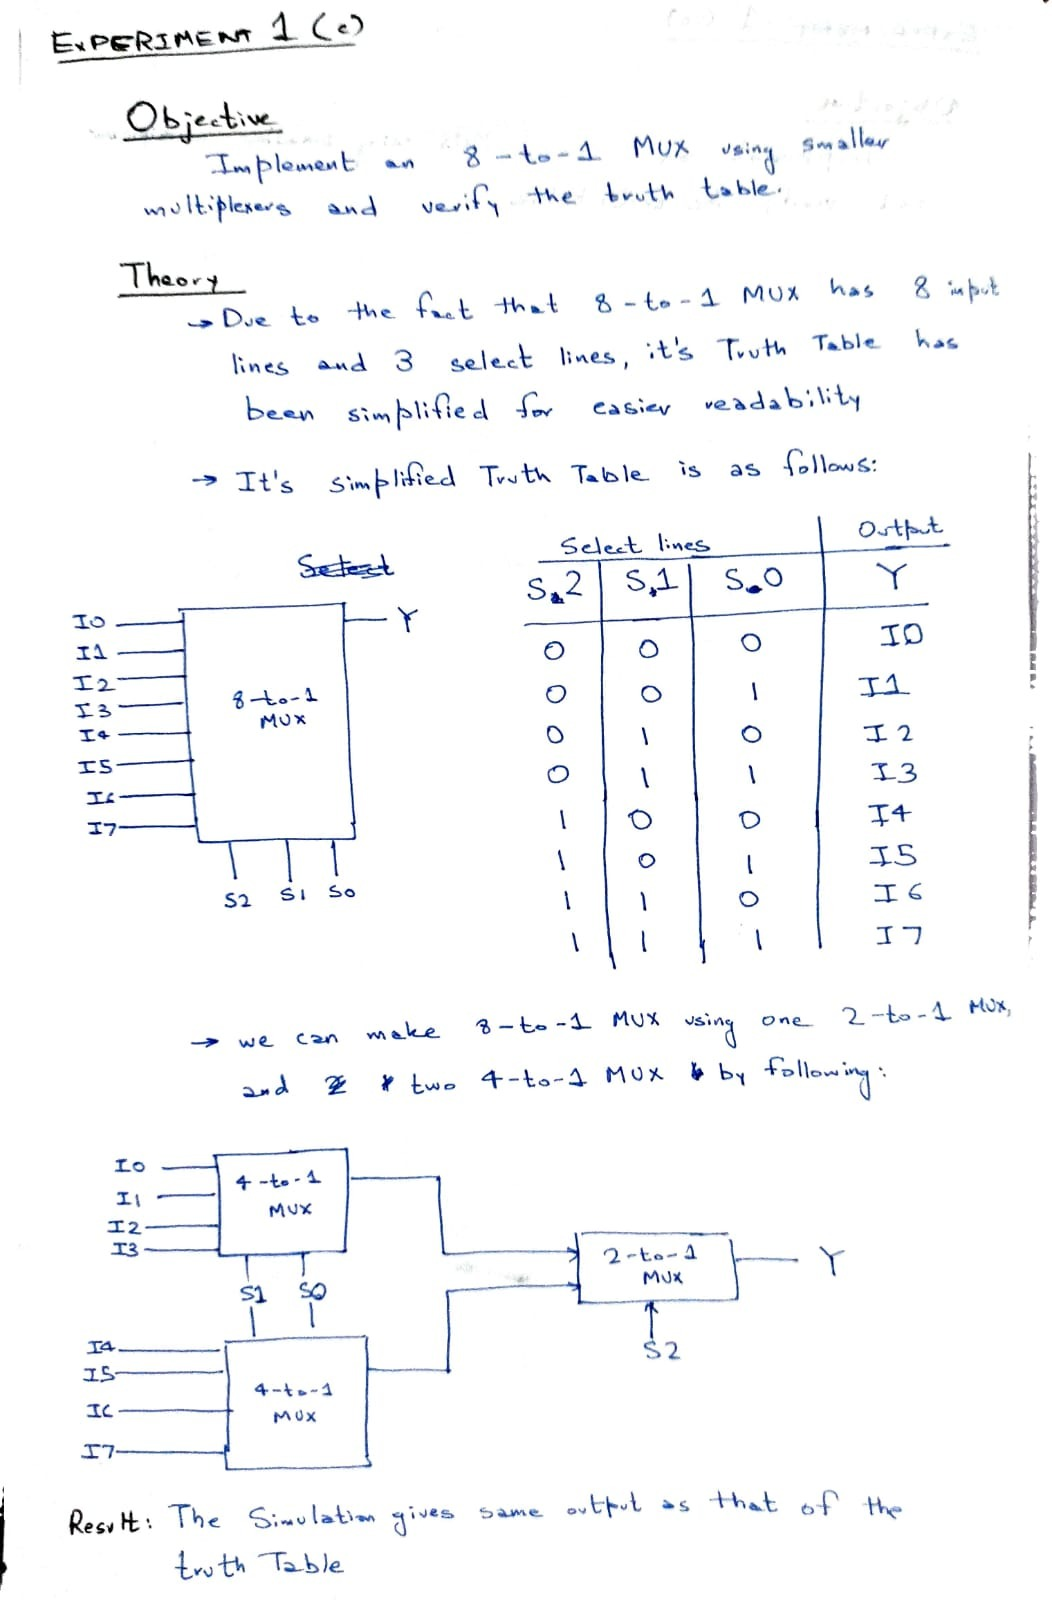 EXPERIMENT 1 (c)
Objective
Implement an 8-to-1 MUX using smaller
multiplexers and verify the truth table.
Theory
→ Due to the fact that 8-to-1 MUX has 8 input
lines and 3 select lines, it's Truth Table has
been simplified for easier readability
→ It's simplified Truth Table is as follows:
Select
I0
I1
I2
I3
I4
I5
I6
I7
8-to-1
MUX
Y
S2 S1 S0
Select lines Output
S2 S1 S0 Y
0 0 0 I0
0 0 1 I1
0 1 0 I2
0 1 1 I3
1 0 0 I4
1 0 1 I5
1 1 0 I6
1 1 1 I7
→ we can make 8-to-1 MUX using one 2-to-1 MUX,
and two 4-to-1 MUX by following:
I0
I1
I2
I3
4-to-1
MUX
S1 S0
I4
I5
I6
I7
4-to-1
MUX
2-to-1
MUX
Y
S2
Result: The Simulation gives same output as that of the
truth Table